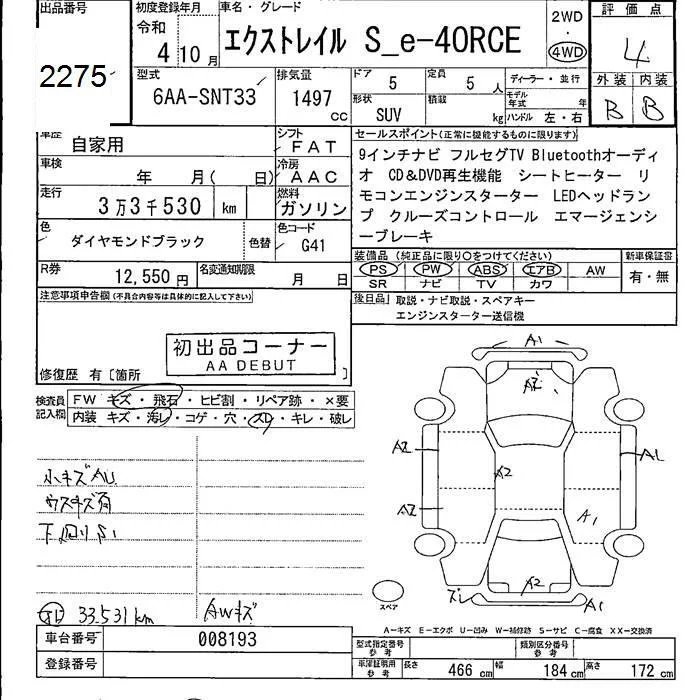 出品番号
2275
初度登録年月
令和
4 10月
車名・グレード
エクストレイル S_e-4ORCE
2WD
・
4WD
評価点
4
外装 内装
B B
型式
6AA-SNT33
排気量
1497
cc
ドア
5
定員
5 人
形状
SUV
積載
kg
ディーラー・並行
モデル年式 年
ハンドル 左・右
車歴
自家用
シフト
FAT
車検
年 月( 日)
冷房
AAC
走行
3万3千530 km
燃料
ガソリン
色
ダイヤモンドブラック
色替
色コード
G41
R券
12,550円
名変通知期限
月 日
セールスポイント(正常に機能するものに限ります)
9インチナビ フルセグTV Bluetoothオーディ
オ CD&DVD再生機能 シートヒーター リ
モコンエンジンスターター LEDヘッドラン
プ クルーズコントロール エマージェンシ
ーブレーキ
装備品 (純正品に限り〇をつけてください)
PS PW ABS エアB AW
SR ナビ TV カワ
新車保証書
有・無
後日品
取説・ナビ取説・スペアキー
エンジンスターター送信機
注意事項申告欄(不具合内容等は具体的に記入して下さい)
初出品コーナー
AA DEBUT
修復歴 有〔箇所 〕
検査員
記入欄
FW キズ・飛石・ヒビ割・リペア跡・×要
内装 キズ・汚レ・コゲ・穴・スレ・キレ・破レ
小キズAU
ウスキズ有
下回りS1
33.531km
AWキズ
A1
A2
A2
A2
A2
A1
A1
A2
スレ
A1
スペア
A―キズ E―エクボ U―凹み W―補修跡 S―サビ C―腐食 XX―交換済
車台番号
008193
登録番号
型式指定番号
参考
類別区分番号
参考
車庫証明用
参考
長さ
466 cm
幅
184 cm
高さ
172 cm